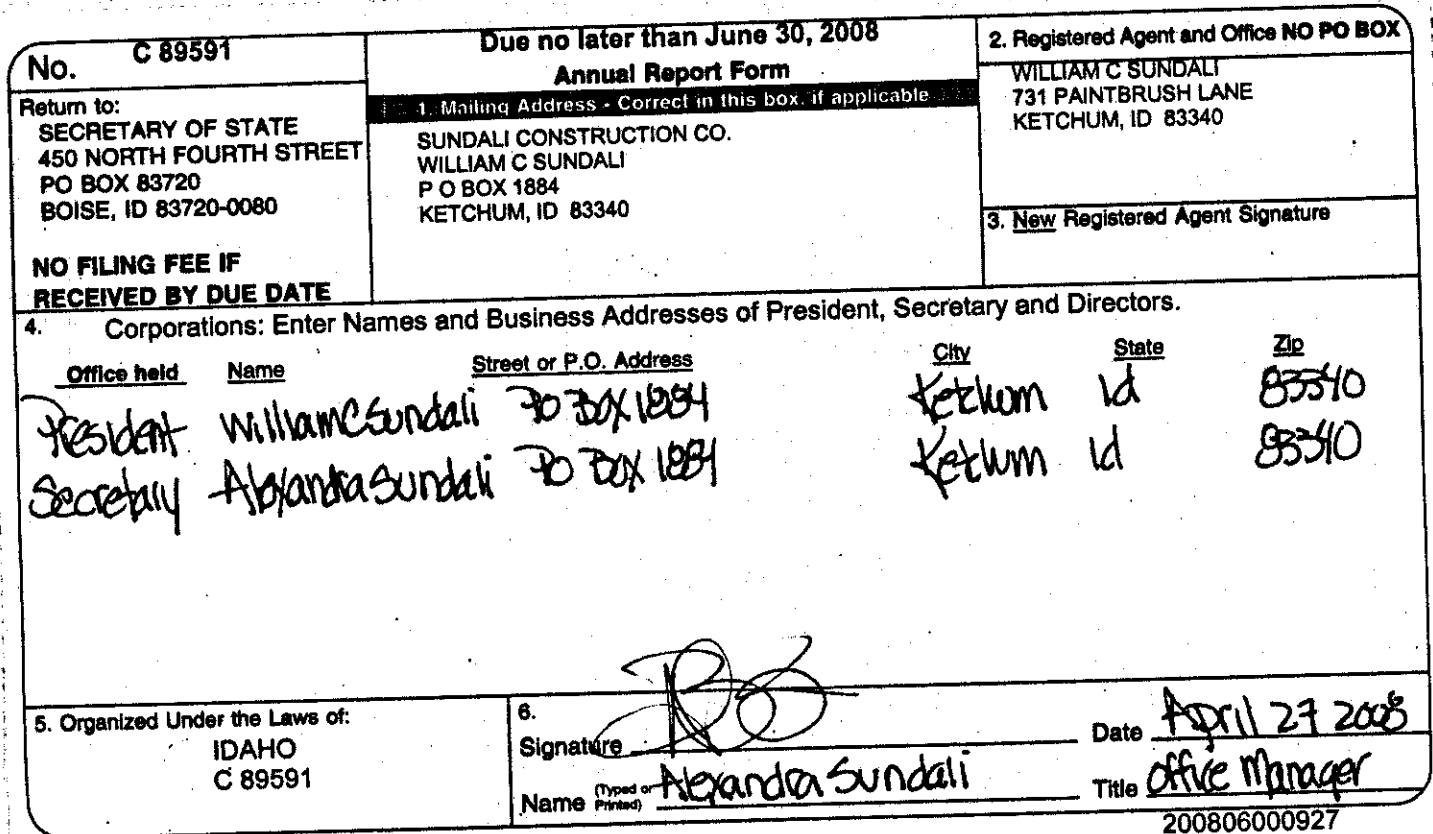 No. C 89591
Return to:
SECRETARY OF STATE
450 NORTH FOURTH STREET
PO BOX 83720
BOISE, ID 83720-0080
NO FILING FEE IF
RECEIVED BY DUE DATE
Due no later than June 30, 2008
Annual Report Form
1. Mailing Address - Correct in this box, if applicable
SUNDALI CONSTRUCTION CO.
WILLIAM C SUNDALI
P O BOX 1884
KETCHUM, ID 83340
2. Registered Agent and Office NO PO BOX
WILLIAM C SUNDALI
731 PAINTBRUSH LANE
KETCHUM, ID 83340
3. New Registered Agent Signature
4. Corporations: Enter Names and Business Addresses of President, Secretary and Directors.
Office held Name Street or P.O. Address City State Zip
President William C Sundali Po Box 1884 Ketchum Id 83340
Secretary Alexandra Sundali Po Box 1884 Ketchum Id 83340
5. Organized Under the Laws of:
IDAHO
C 89591
6.
Signature Date April 27 2008
Name (Typed or Printed) Alexandra Sundali Title Office Manager
200806000927